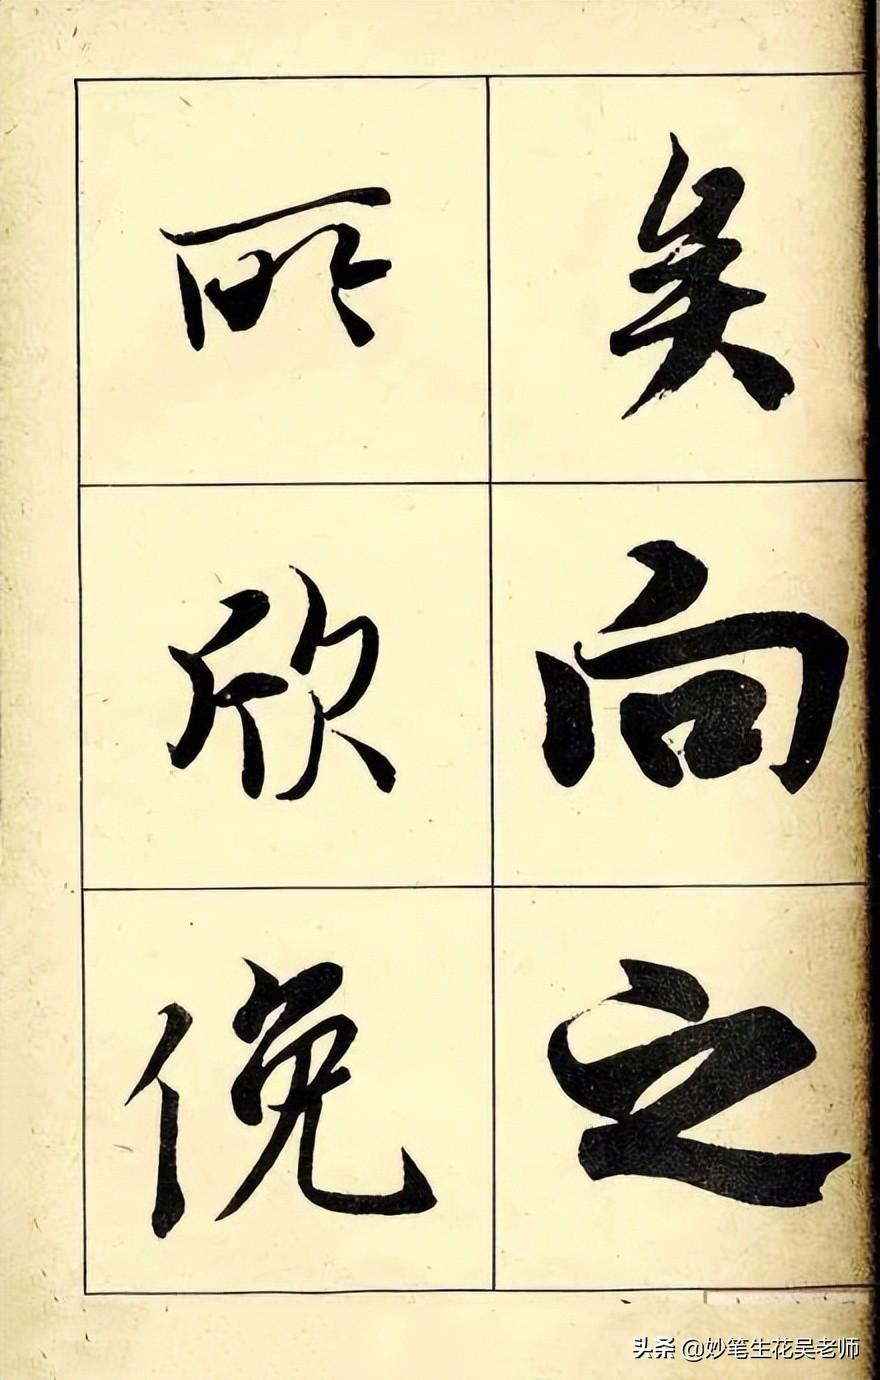 矣向之
所欣俛
头条 @妙笔生花吴老师